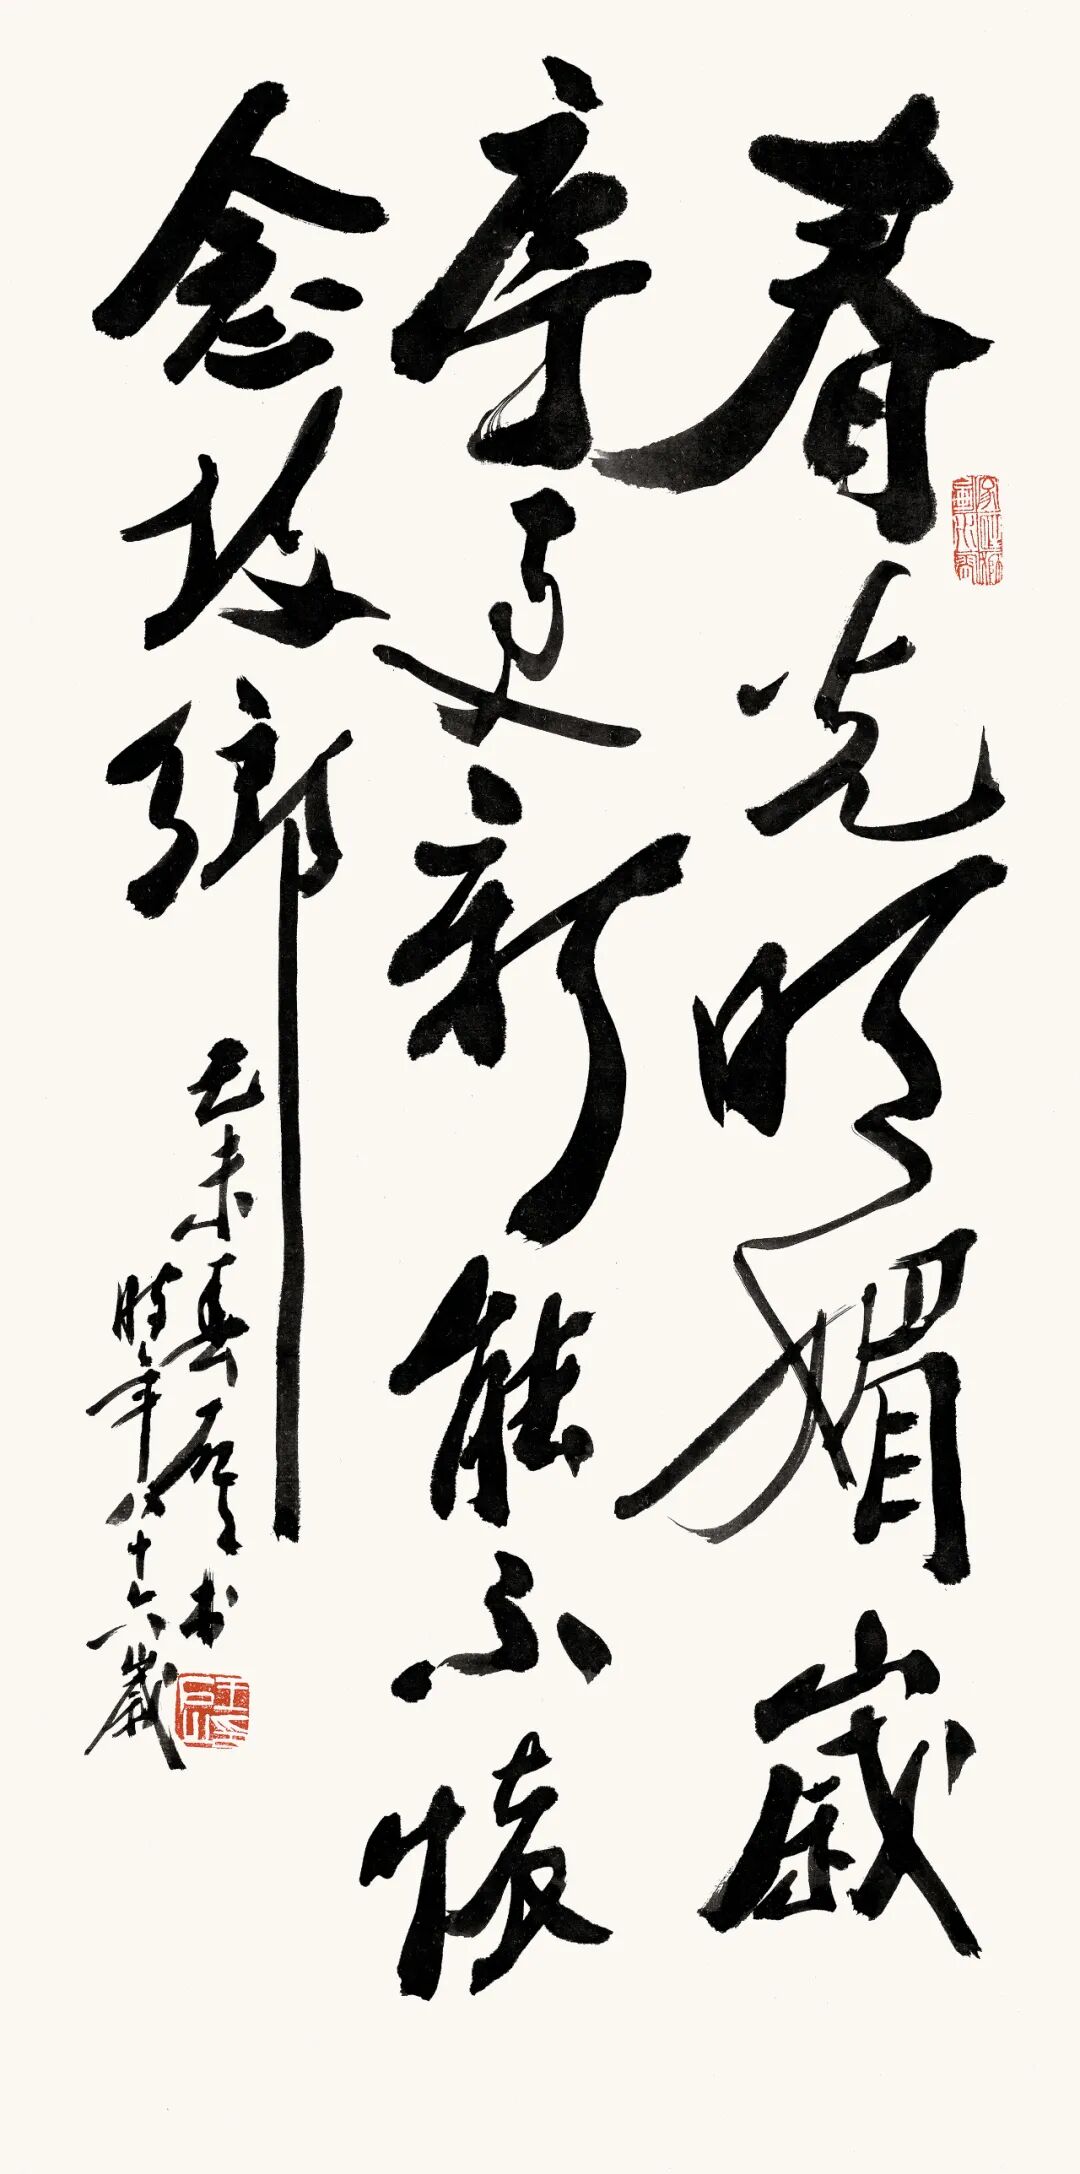 春光明媚歲
序更新能不懷
念故鄉
乙未春书
時年八十六歲